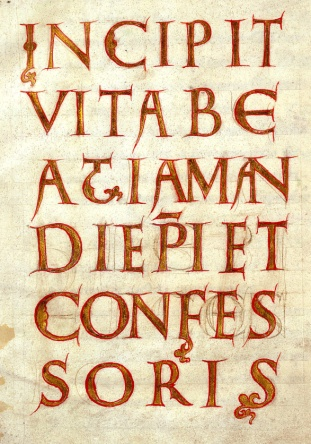 INCIPIT
VITA BE
ATI AMAN
DI EP̄I ET
CONFES
SORIS